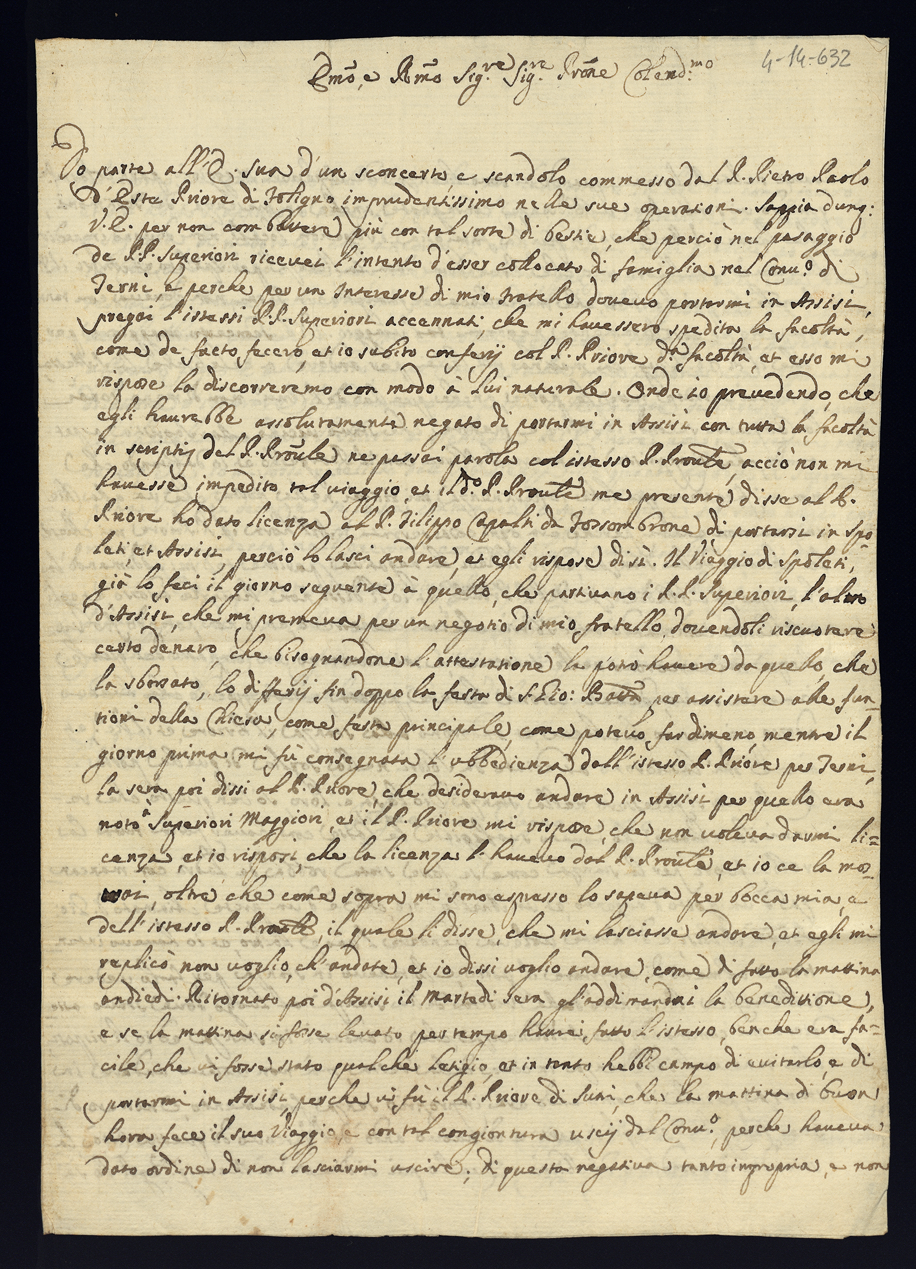 4-14-632
Emo, e Rmo Sig.re Sig.re Prone Colend:mo
Do parte all'E. Sua d'un sconcerto, e scandolo commesso dal P. Pietro Paolo
d'Este Priore di Foligno imprudentissimo nelle sue operationi. Sappia dunq:
V.E. per non combattere più con tal sorte di bestie, che perciò nel pasaggio
de PP. Superiori ricevei l'intento d'esser collocato di famiglia nel Conv.o di
Terni, e perche per un Interesse di mio fratello dovevo portarmi in Assisi,
pregai l'istessi P.P. Superiori accennati, che mi havessero spedita la facoltà,
come de facto fecero, et io subito conferij col P. Priore d.a facoltà, et esso mi
rispose la discorreremo con modo à lui naturale. Onde io prevedendo, che
egli haurebbe assolutamente negato di portarmi in Assisi con tutta la facoltà
in scriptij del P. Prõule ne passai parola col istesso P. Proule, acciò non mi
havesse impedito tal viaggio, et il d.o P. Proule me presente disse al P.
Priore ho dato licenza al P. Filippo Capalti da Fossombrone di portarsi in Spo
leti, et Assisi, perciò lo lasci andare, et egli rispose di sì. Il Viaggio di Spoleti,
già lo feci il giorno seguente à quello, che partivano i P.P. Superiori, l'altro
d'Assisi, che mi premeva per un negotio di mio fratello, dovendoli riscuotere
certo denaro, che bisognandone l'attestatione la potrò havere da quello, che
la sborsato, lo differij fin doppo la festa di S. Gio: Batta per assistere alle fun=
tioni della Chiesa, come festa principale, come potevo far dimeno, mentre il
giorno prima mi fù consegnata l'ubbedienza dall'istesso P. Priore per Terni,
la sera poi dissi al P. Priore, che desideravo andare in Assisi per quello era
noto à Superiori Maggiori, et il P. Priore mi rispose, che non voleva darmi li=
cenza, et io risposi, che la licenza l'havevo dal P. Proule, et io ce la mo=
strai, oltre che come sopra mi sono espresso lo sapeva per bocca mia, e
dell'istesso P. Proule, il quale li disse, che mi lasciasse andare, et egli mi
replicò non voglio, ch'andate, et io dissi voglio andare, come di fatto la mattina
andiedi. Ritornato poi d'Assisi il Martedì sera gl'addimandai la benedittione,
e se la mattina si fosse levato per tempo haurei fatto l'istesso, benche era fa=
cile, che vi fosse stato qualche letigio, et in tanto hebbi campo di evitarlo, e di
portarmi in Assisi, perche vi fù il P. Priore di Suri, che la mattina di buon'
hora fece il suo Viaggio, e con tal congiontura uscij dal Conv.o, perche haveva
dato ordine di non lasciarmi uscire, di questa negativa tanto impropria, e non